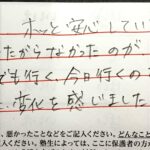 ホッと安心してい
たがらなかったのが
も行く、今日行くの
変化を感じました
、悪かったことなどをご記入ください。どんなこと
ください。塾生によっては、ここに保護者の方